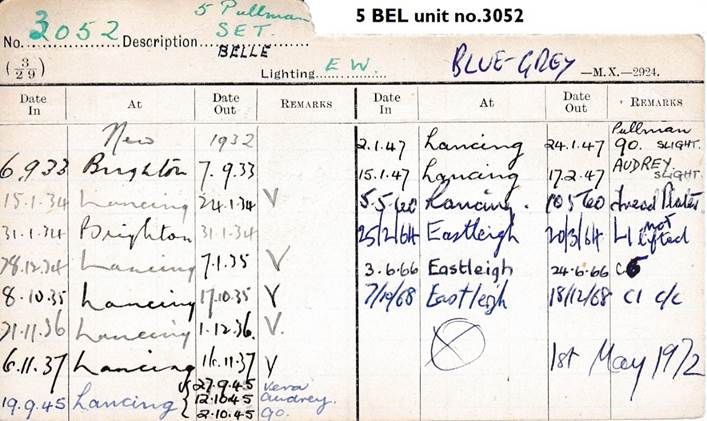 5 BEL unit no.3052
5 Pullman
No. 3052 Description SET.
BELLE
(3/29)
Lighting E W. BLUE-GREY —M.X.—2924.
Date In At Date Out REMARKS Date In At Date Out REMARKS
New 1932
6.9.33 Brighton 7.9.33
15.1.34 Lancing 24.1.34 V
31.1.34 Brighton 31.1.34
28.12.34 Lancing 7.1.35 V
8.10.35 Lancing 17.10.35 V
21.11.36 Lancing 1.12.36. V.
6.11.37 Lancing 16.11.37 V
27.9.45 Vera
19.9.45 Lancing { 12.10.45 Audrey.
2.10.45 90.
Pullman
2.1.47 Lancing 24.1.47 90. SLIGHT.
15.1.47 Lancing 17.2.47 AUDREY SLIGHT.
5.5.60 Lancing. 10.5.60 Tread Plates
25/2/64 Eastleigh 20/3/64 L1 not lifted
3.6.66 Eastleigh 24.6.66 C5
7/10/68 Eastleigh 18/12/68 C1 c/c
1st May 1972